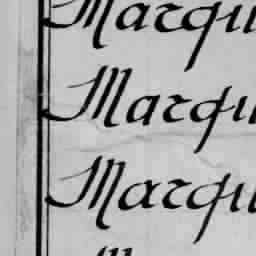 Marqu
Marqu
Marqu